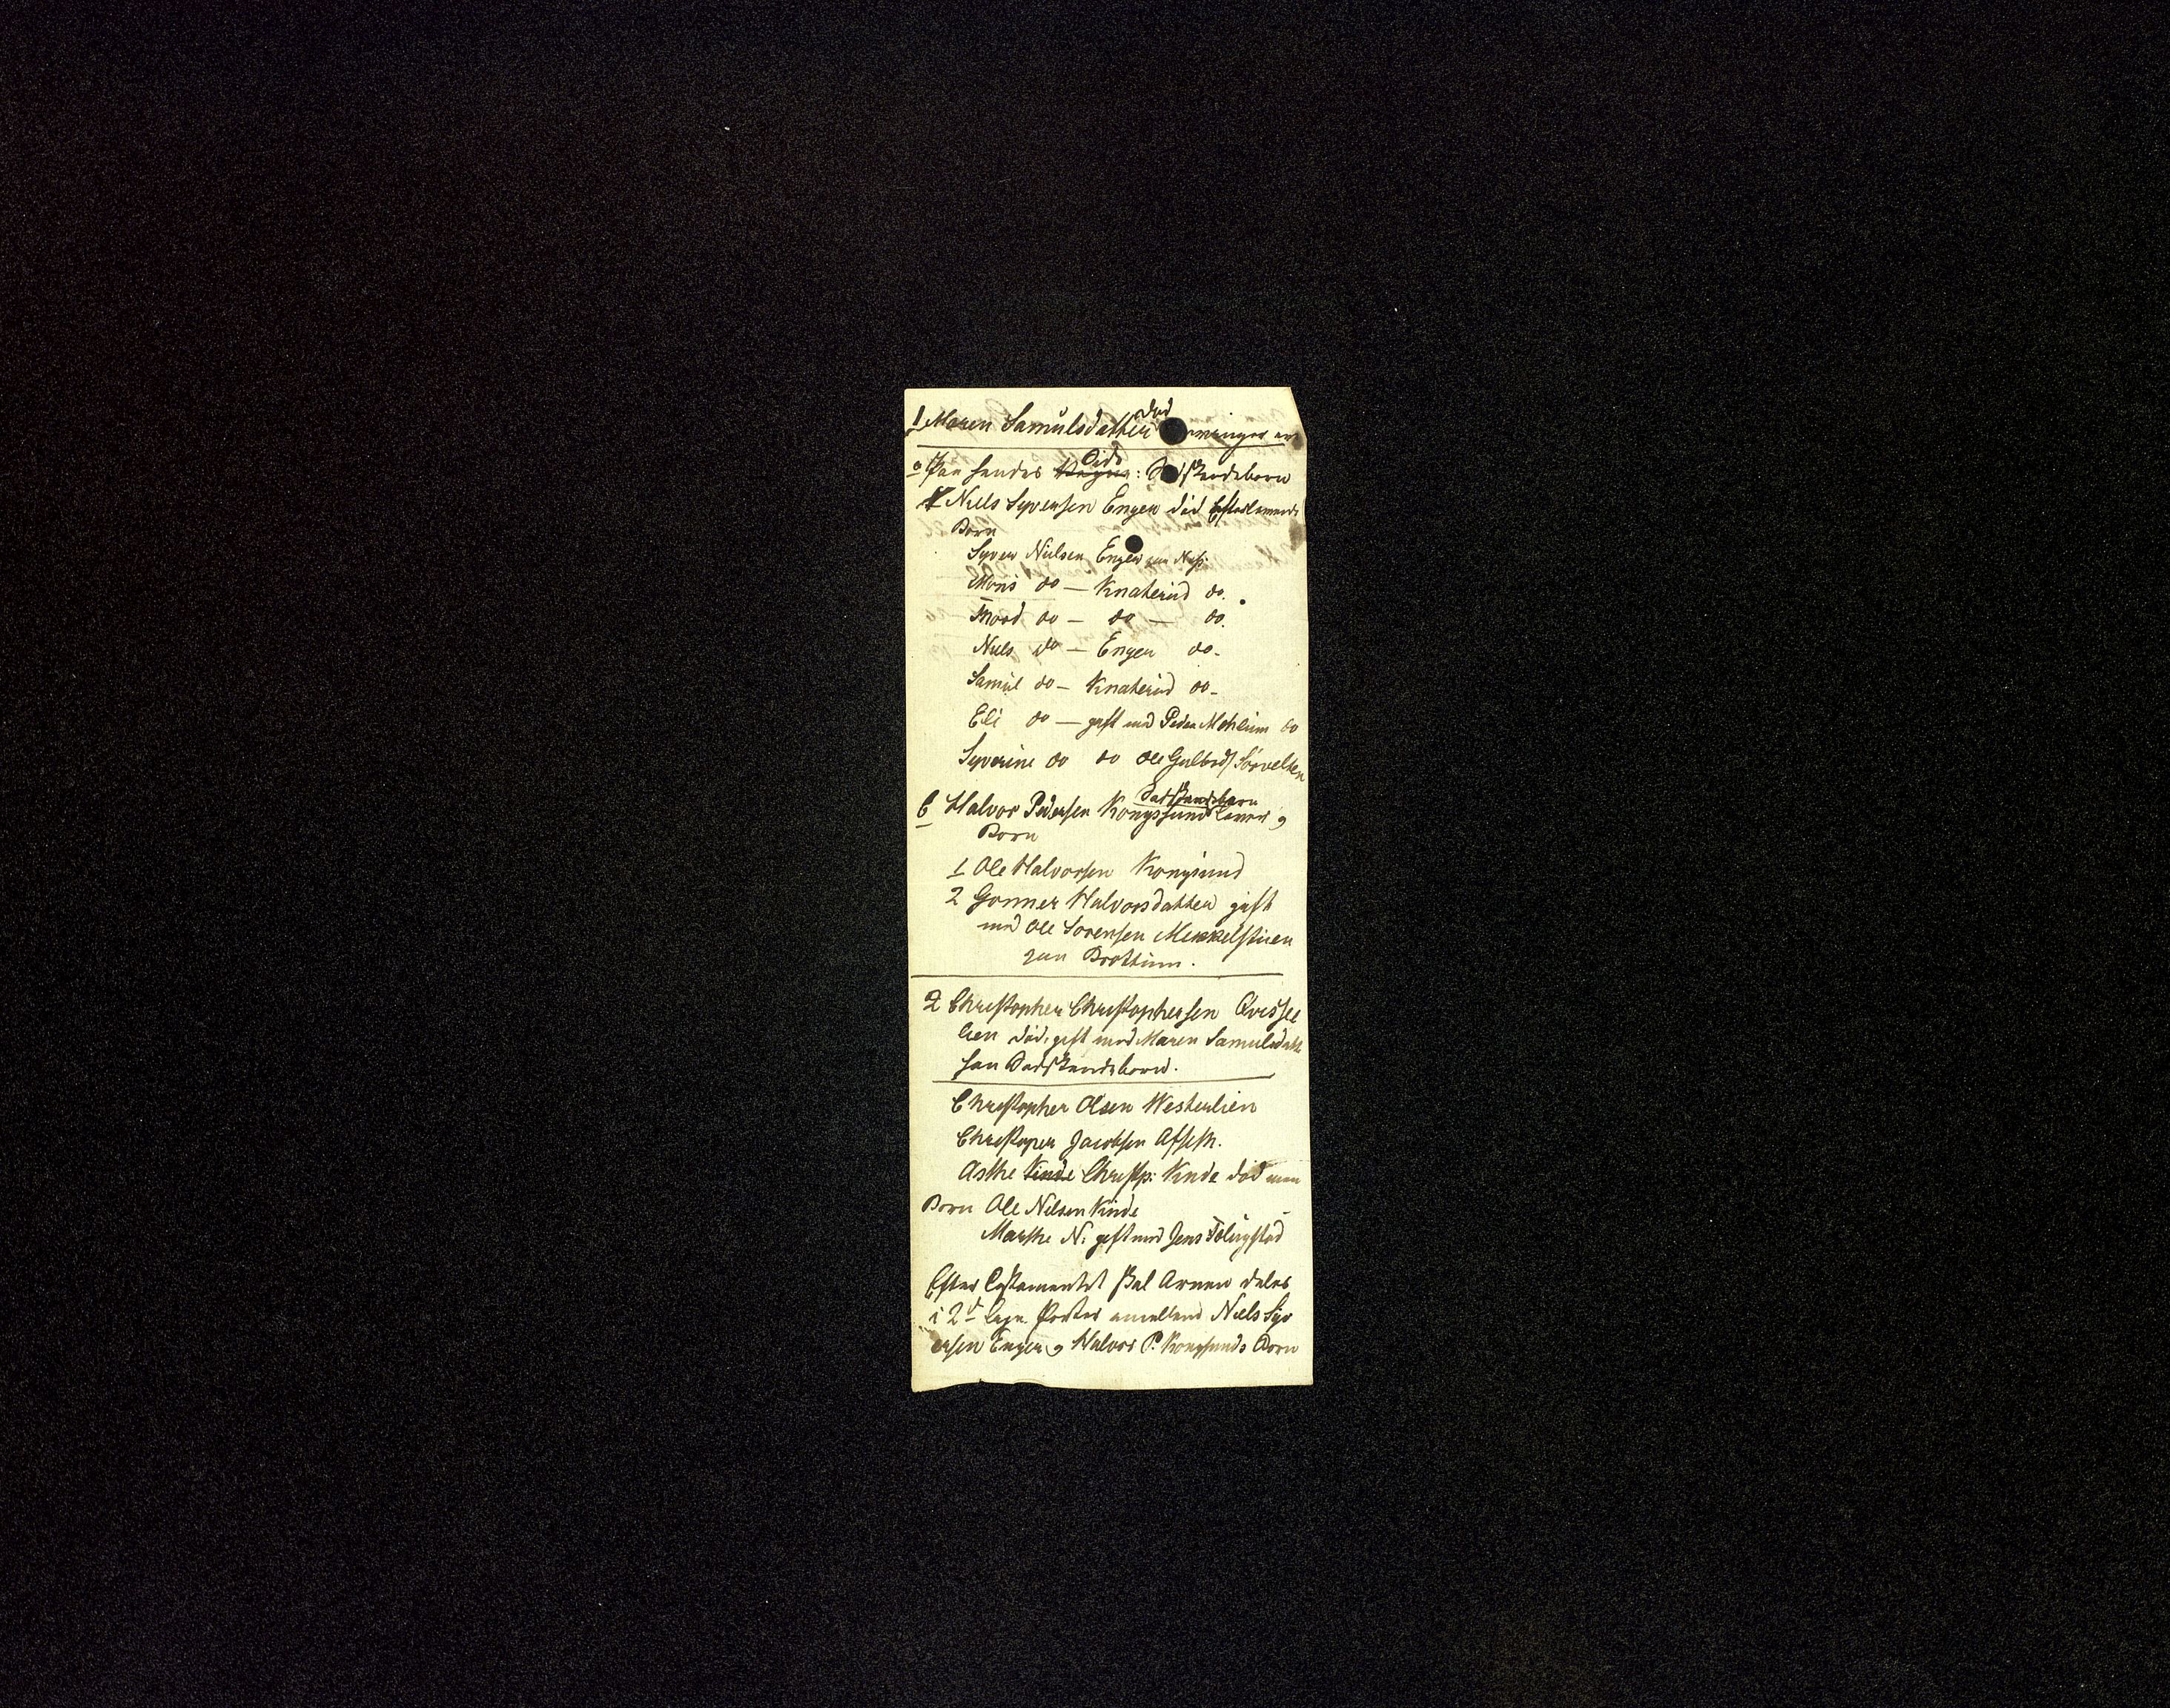 1 Maren Samulsdatter død arvinger er
a Paa hendes Side: Sødskendeborn
1 Niels Syversen Enger død Efterlevende
Born
Syver Nielsen Enger paa Næss:
Mons do — Knaterud do.
Thord do — do — do.
Niels do — Enger do -
Samul do — Knaterud do -
Eli do — gift med Peder Mohlum do
Syverine do do Ole Gulbrds Sørvelten
b Halvor Pedersen Kongssund Sødskendebarn lever,
Born
1 Ole Halvorsen Kongsund
2 Gonner Halvorsdatter gift
med Ole Sorensen Mekkelstuen
paa Brottum.
2 Christopher Christophersen Qvisle
lien død, gift med Maren Samulsdatt
han Sødskendeborn.
Christopher Olsen Westerlien
Christoper Jacobsen Afseth.
Asthe Kinde Christp: Kinde død men
Born Ole Nilsen Kinde
Marthe N. gift med Jens Tolingstad
Efter Testamentet skal Arven deles
i 2de lige Parter imellem Niels Syv
ersen Enger og Halvor P. Kongsunds Born